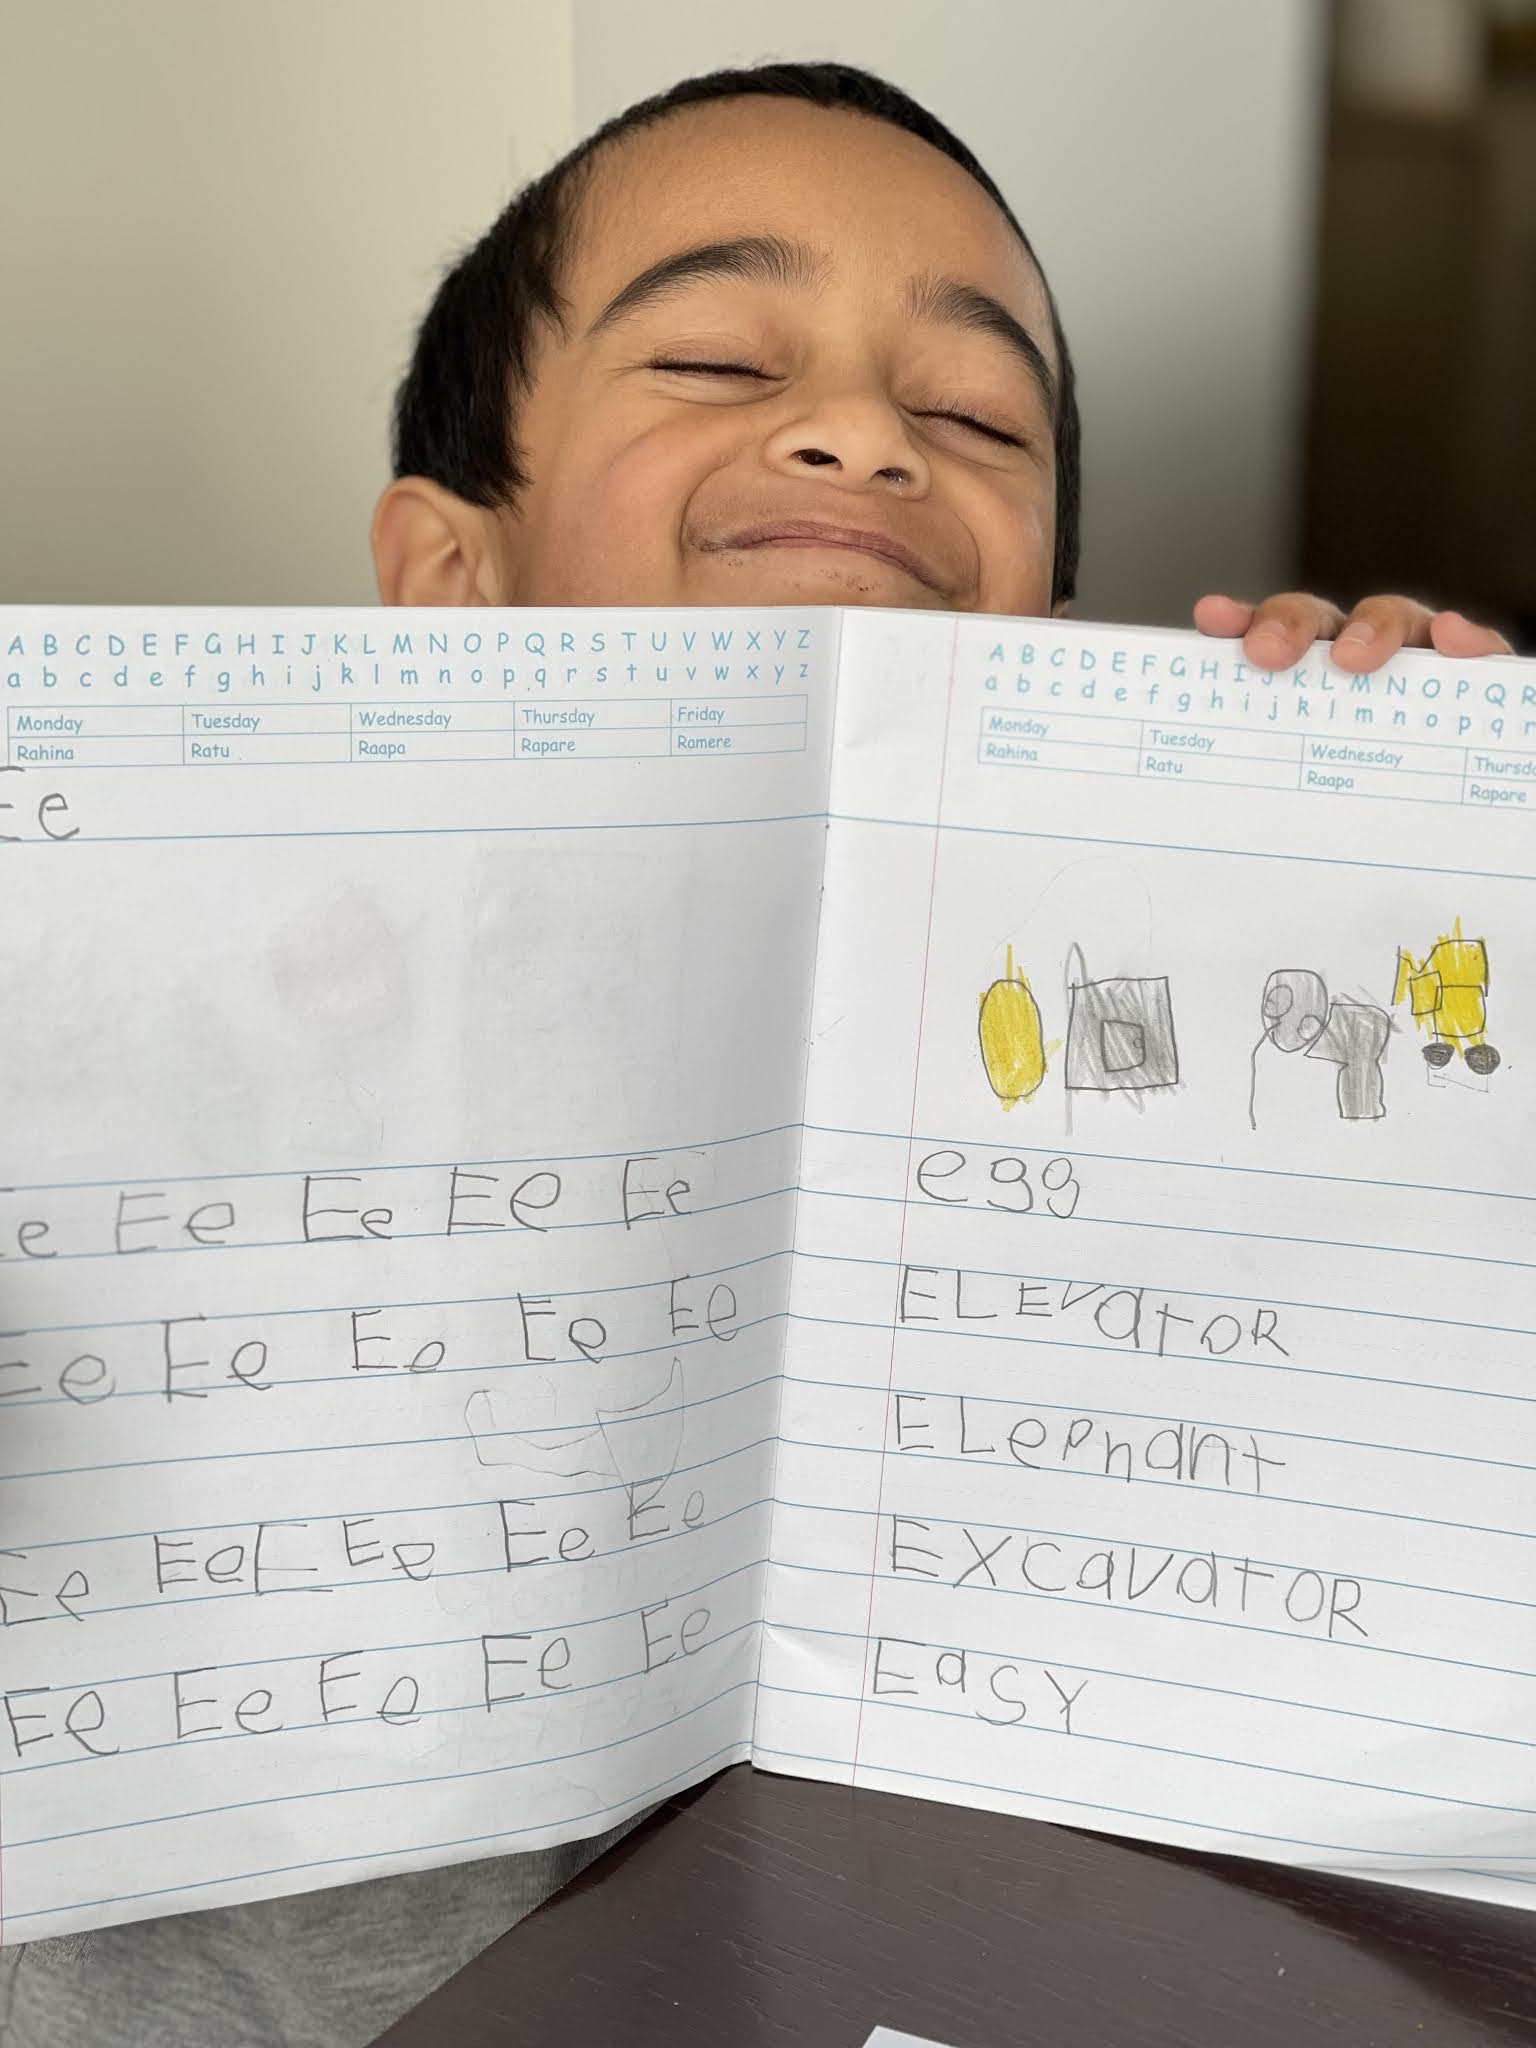 A B C D E F G H I J K L M N O P Q R S T U V W X Y Z
a b c d e f g h i j k l m n o p q r s t u v w x y z
Monday Tuesday Wednesday Thursday Friday
Rahina Ratu Raapa Rapare Ramere
Ee
Ee Ee Ee Ee Ee
Ee Ee Ee Ee Ee
Ee EeE Ee Ee Ee
Ee Ee Ee Ee Ee
A B C D E F G H I J K L M N O P Q R
a b c d e f g h i j k l m n o p q r
Monday Tuesday Wednesday Thursd
Rahina Ratu Raapa Rapare
egg
ELEVatoR
ELePhant
EXcavatoR
EasY